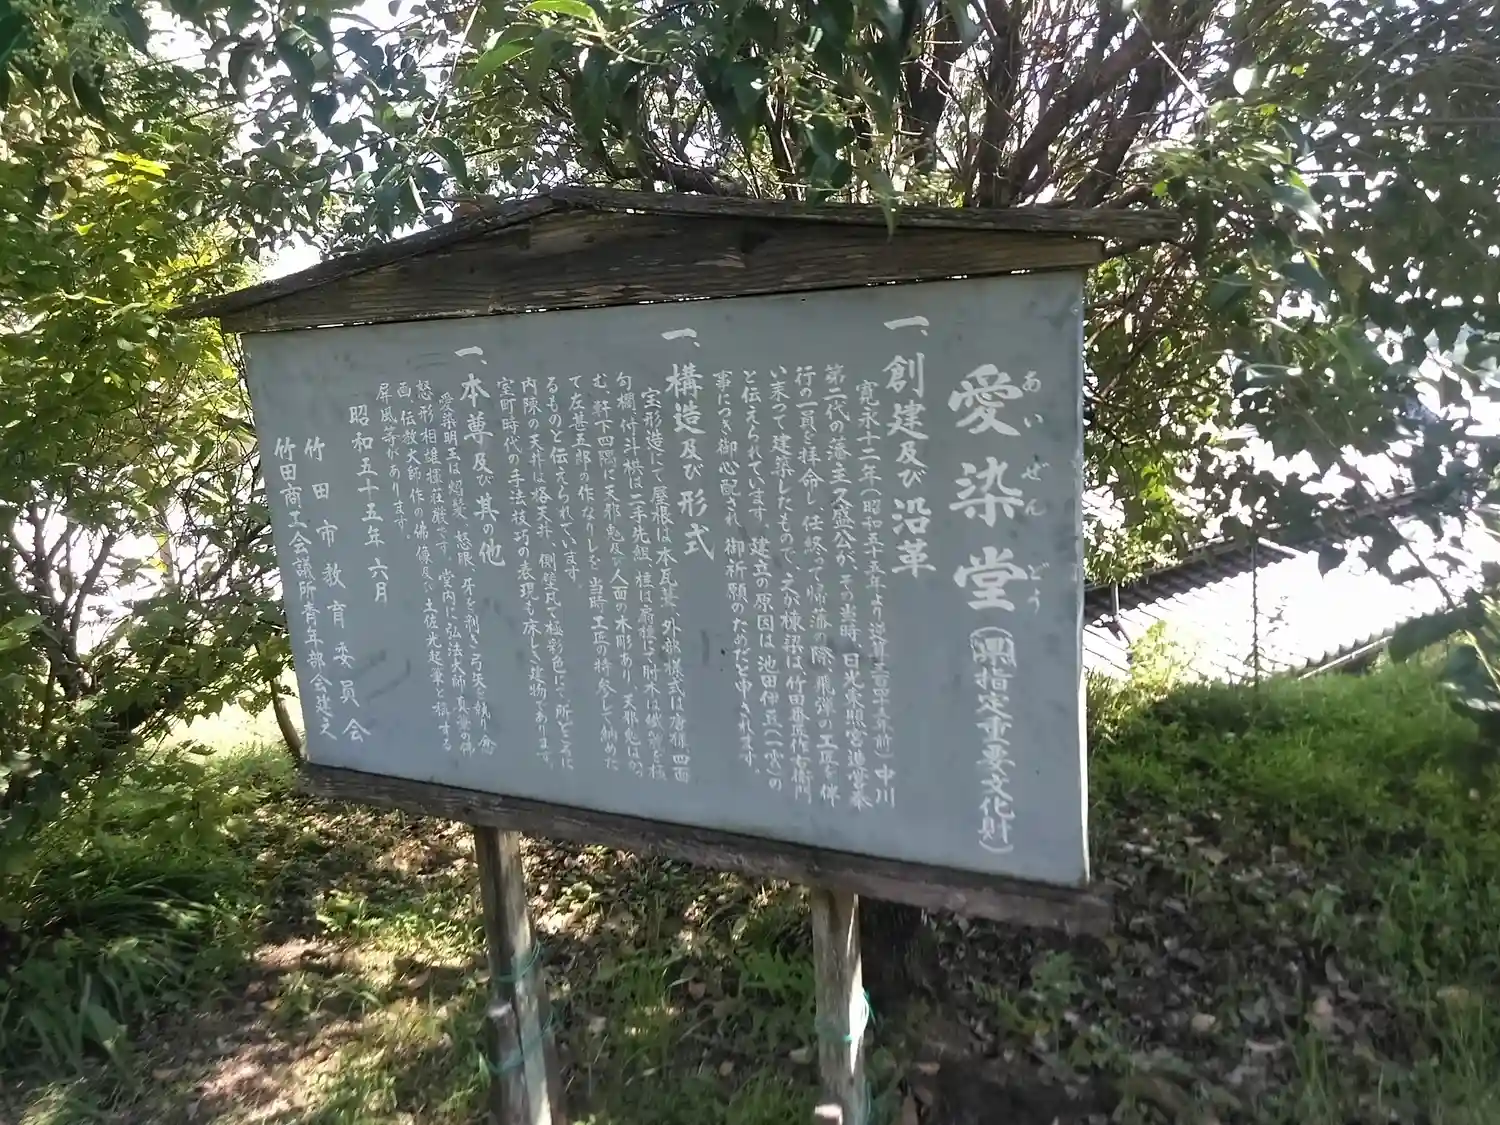 愛染堂(県指定重要文化財)
あいぜんどう
一、創建及び沿革
寛永十二年(昭和五十五年より逆算三百四十五年前)中川
第二代の藩主久盛公が、その当時、日光東照宮造営奉
行の一員を拝命し、任終って帰藩の際、飛弾の工匠を伴
い来つて建築したもので、之が棟梁は竹田番匠作右衛門
と伝えられています。建立の原因は池田伊豆(一吹)の
事につき御心配され、御祈願のためだと申されます。
一、構造及び形式
宝形造にて屋根は本瓦葺、外部様式は唐様、四面
勾欄、付斗栱は二手先組、棰は扇棰にて肘木は
む、軒下四隅に天邪鬼及び人面の木彫あり、天邪鬼はかつ
て左甚五郎の作なりしを、当時工匠の持参して納めた
るものと伝えられています。
内陣の天井は格天井、側壁凡て極彩色にて、所どころに
室町時代の手法技巧の表現も床しい建物であります。
一、本尊及び其の他
愛染明王は焰髪、怒眼、牙を剥き弓矢を執り、
怒形相雄渾荘厳です。堂内に弘法大師真筆の佛
画、伝教大師作の佛像及び土佐光起筆と称する
屏風等があります。
昭和五十五年六月
竹田市教育委員会
竹田商工会議所青年部会建之